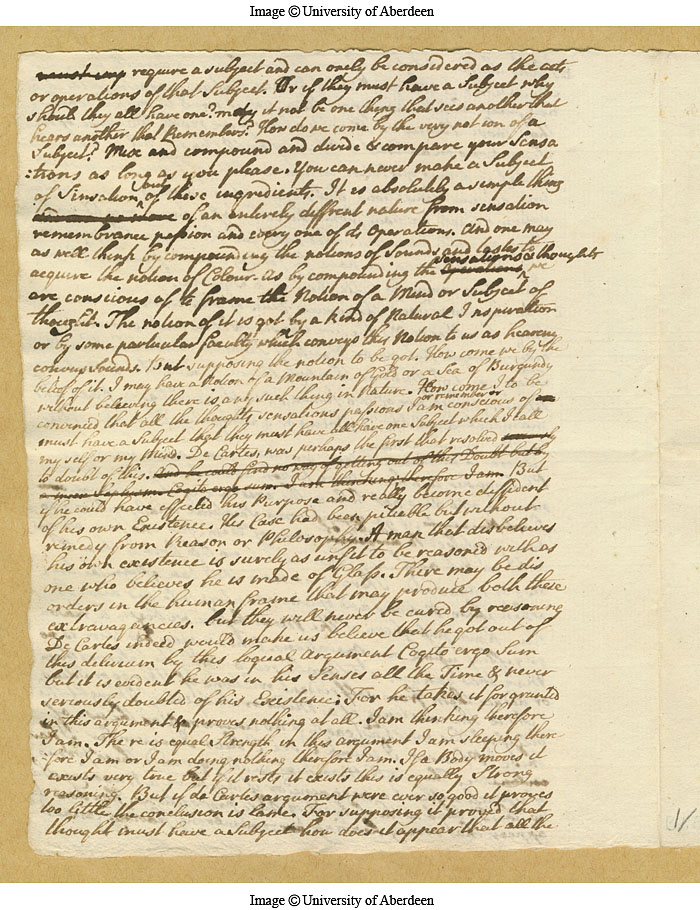 Image © University of Aberdeen
require a subject and can onely be considered as the acts
or operations of that Subject. Or if they must have a Subject why
should they all have one? may it not be one thing that sees another that
hears another that Remembers? How do we come by the very notion of a
Subject? Mix and compound and divide & compare your Sensa
:tions as long as you please. You can never make a Subject
of Sensation out of these ingredients. It is absolutely a simple thing
of an entirely diffrent nature from sensation
remembrance passion and every one of its Operations. And one may
as well think by compounding the notions of Sounds and tastes to
acquire the notion of Colour. as by compounding the sensations & thoughts we
are conscious of to frame the Notion of a Mind or Subject of
thought. The notion of it is got by a kind of Natural Inspiration
or by some particular faculty which conveys this Notion to us as hearing
conveys Sounds. But supposing the notion to be got. How come we by the
beleef of it. I may have a Notion of a Mountain of Gold or a Sea of Burgundy
without believing there is any such thing in Nature. How come I to be
convinced that all the thoughts sensations passions I am conscious of or remember
must have a Subject that they must have all have one Subject which I call
my self or my mind. De Cartes, was perhaps the first that resolved
to doubt of this. And he could find no way of getting out of this Doubt but by
Cogito ergo sum. I am thinking therefore I am. But
if he could have effected his Purpose and really become diffident
of his own Existence. His Case had been pitiable but without
remedy from Reason or Philosophy. A man that disbelieves
his own existence is surely as unfit to be reasoned with as
one who believes he is made of Glass. There may be dis
orders in the human frame that may produce both these
extravagancies. but they will never be cured by reasoning
De Cartes indeed would make us believe that he got out of
this delirium by this logical argument Cogito ergo Sum
but it is evident he was in his Senses all the Time & never
seriously doubted of his Existence; For he takes it for granted
in this argument & proves nothing at all. I am thinking therefore
I am. There is equal Strength in this argument I am sleeping there
:fore I am or I am doing nothing therefore I am. If a Body moves it
exists very true but if it rests it exists this is equally Strong
reasoning. But if de Cartes argument were ever so good it proves
too little the conclusion is lame. For supposing it proved that
thought must have a Subject how does it appear that all the
Image © University of Aberdeen